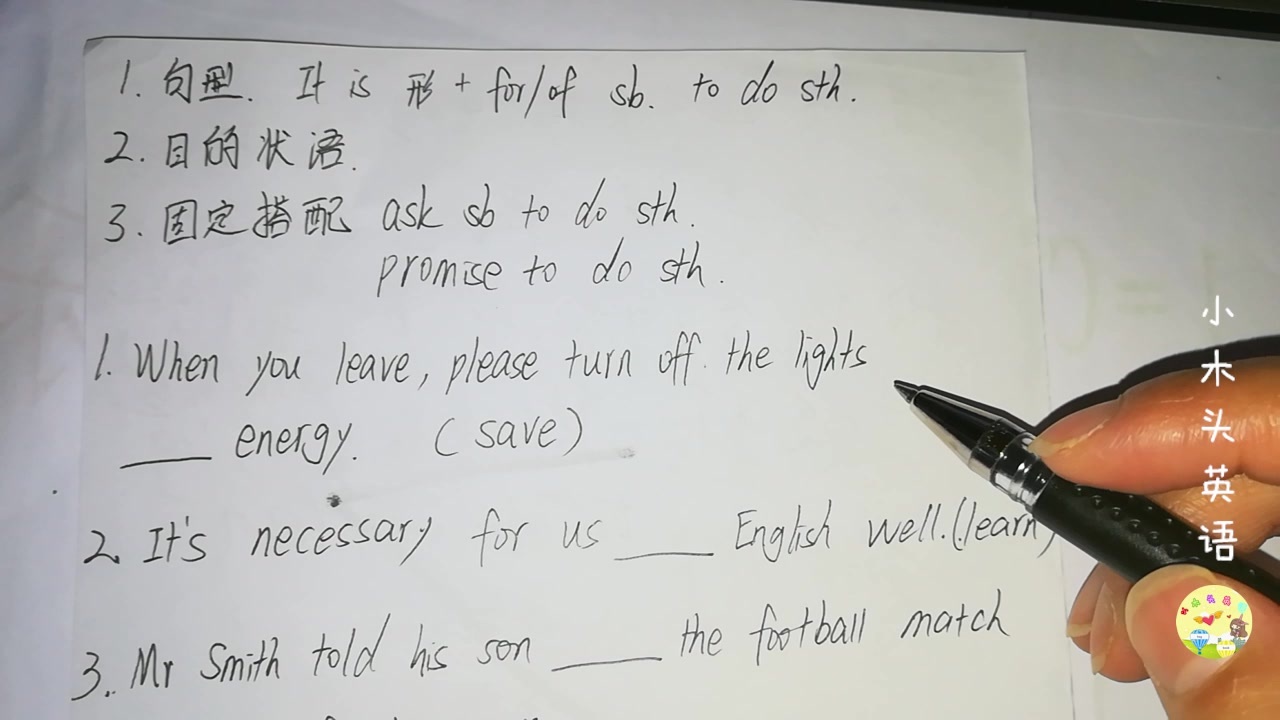 1. 句型. It is 形 + for/of sb. to do sth.
2. 目的状语.
3. 固定搭配 ask sb to do sth.
promise to do sth.
1. When you leave, please turn off. the lights
____ energy. (save)
2. It's necessary for us ____ English well.(learn)
3. Mr Smith told his son ____ the football match
小木头英语